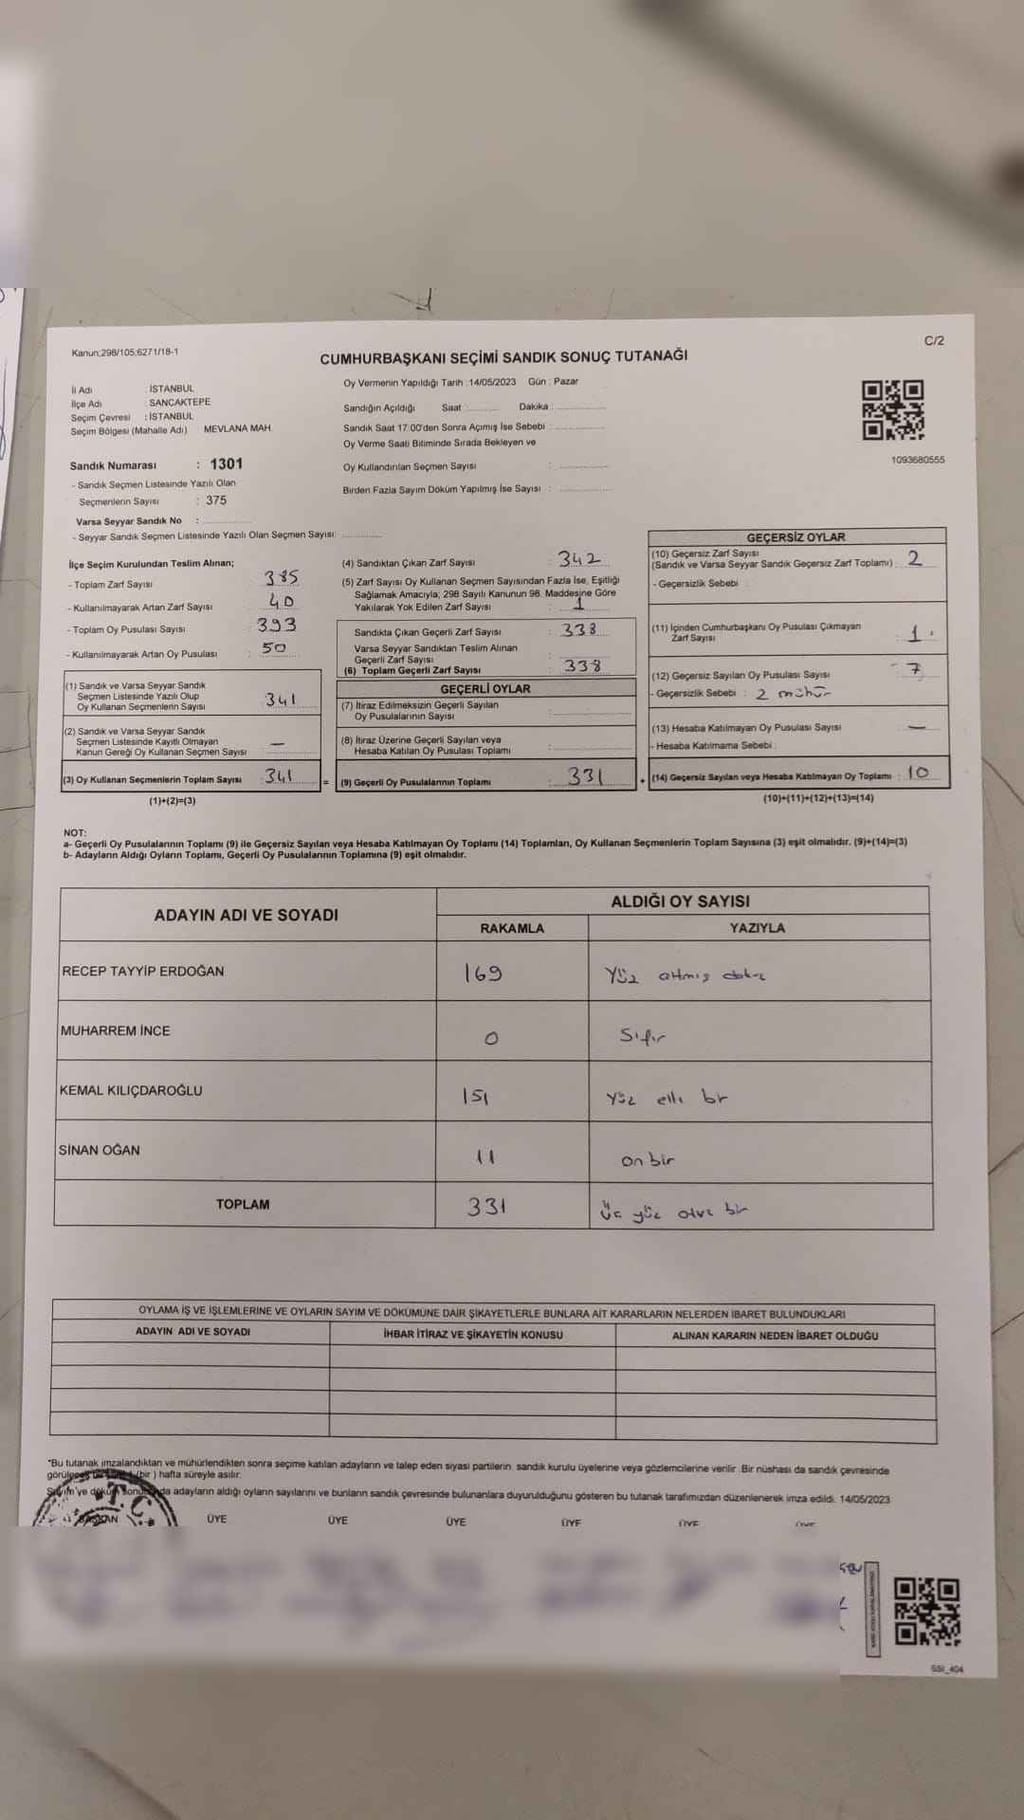 Kanun;298/105;6271/18-1
C/2
CUMHURBAŞKANI SEÇİMİ SANDIK SONUÇ TUTANAĞI
İl Adı : İSTANBUL
İlçe Adı : SANCAKTEPE
Seçim Çevresi : İSTANBUL
Seçim Bölgesi (Mahalle Adı) MEVLANA MAH.
Sandık Numarası : 1301
- Sandık Seçmen Listesinde Yazılı Olan
Seçmenlerin Sayısı : 375
Varsa Seyyar Sandık No :
- Seyyar Sandık Seçmen Listesinde Yazılı Olan Seçmen Sayısı:
Oy Vermenin Yapıldığı Tarih :14/05/2023 Gün : Pazar
Sandığın Açıldığı Saat : Dakika :
Sandık Saat 17.00'den Sonra Açımış İse Sebebi :
Oy Verme Saati Bitiminde Sırada Bekleyen ve
Oy Kullandırılan Seçmen Sayısı :
Birden Fazla Sayım Döküm Yapılmış İse Sayısı :
1093680555
İlçe Seçim Kurulundan Teslim Alınan;
- Toplam Zarf Sayısı : 385
- Kullanılmayarak Artan Zarf Sayısı : 40
- Toplam Oy Pusulası Sayısı : 393
- Kullanılmayarak Artan Oy Pusulası : 50
(1) Sandık ve Varsa Seyyar Sandık
Seçmen Listesinde Yazılı Olup
Oy Kullanan Seçmenlerin Sayısı : 341
(2) Sandık ve Varsa Seyyar Sandık
Seçmen Listesinde Kayıtlı Olmayan
Kanun Gereği Oy Kullanan Seçmen Sayısı : —
(3) Oy Kullanan Seçmenlerin Toplam Sayısı : 341
(1)+(2)=(3)
(4) Sandıktan Çıkan Zarf Sayısı : 342
(5) Zarf Sayısı Oy Kullanan Seçmen Sayısından Fazla İse, Eşitliği
Sağlamak Amacıyla; 298 Sayılı Kanunun 98. Maddesine Göre
Yakılarak Yok Edilen Zarf Sayısı : 1
Sandıkta Çıkan Geçerli Zarf Sayısı : 338
Varsa Seyyar Sandıktan Teslim Alınan
Geçerli Zarf Sayısı :
(6) Toplam Geçerli Zarf Sayısı : 338
GEÇERLİ OYLAR
(7) İtiraz Edilmeksizin Geçerli Sayılan
Oy Pusulalarının Sayısı :
(8) İtiraz Üzerine Geçerli Sayılan veya
Hesaba Katılan Oy Pusulası Toplamı :
= (9) Geçerli Oy Pusulalarının Toplamı : 331
GEÇERSİZ OYLAR
(10) Geçersiz Zarf Sayısı
(Sandık ve Varsa Seyyar Sandık Geçersiz Zarf Toplamı) : 2
- Geçersizlik Sebebi :
(11) İçinden Cumhurbaşkanı Oy Pusulası Çıkmayan
Zarf Sayısı : 1
(12) Geçersiz Sayılan Oy Pusulası Sayısı : 7
- Geçersizlik Sebebi : 2 mühür
(13) Hesaba Katılmayan Oy Pusulası Sayısı : —
- Hesaba Katılmama Sebebi :
+ (14) Geçersiz Sayılan veya Hesaba Katılmayan Oy Toplamı : 10
(10)+(11)+(12)+(13)=(14)
NOT:
a- Geçerli Oy Pusulalarının Toplamı (9) ile Geçersiz Sayılan veya Hesaba Katılmayan Oy Toplamı (14) Toplamları, Oy Kullanan Seçmenlerin Toplam Sayısına (3) eşit olmalıdır. (9)+(14)=(3)
b- Adayların Aldığı Oyların Toplamı, Geçerli Oy Pusulalarının Toplamına (9) eşit olmalıdır.
ADAYIN ADI VE SOYADI
ALDIĞI OY SAYISI
RAKAMLA YAZIYLA
RECEP TAYYİP ERDOĞAN 169 Yüz altmış dokuz
MUHARREM İNCE 0 Sıfır
KEMAL KILIÇDAROĞLU 151 Yüz elli bir
SİNAN OĞAN 11 on bir
TOPLAM 331 Üç yüz otuz bir
OYLAMA İŞ VE İŞLEMLERİNE VE OYLARIN SAYIM VE DÖKÜMÜNE DAİR ŞİKAYETLERLE BUNLARA AİT KARARLARIN NELERDEN İBARET BULUNDUKLARI
ADAYIN ADI VE SOYADI İHBAR İTİRAZ VE ŞİKAYETİN KONUSU ALINAN KARARIN NEDEN İBARET OLDUĞU
*Bu tutanak imzalandıktan ve mühürlendikten sonra seçime katılan adayların ve talep eden siyasi partilerin sandık kurulu üyelerine veya gözlemcilerine verilir. Bir nüshası da sandık çevresinde
(bir) hafta süreyle asılır.
Sayım ve döküm adayların aldığı oyların sayılarını ve bunların sandık çevresinde bulunanlara duyurulduğunu gösteren bu tutanak tarafımızdan düzenlenerek imza edildi. 14/05/2023
T.C.
BAŞKAN ÜYE ÜYE ÜYE ÜYE ÜYE ÜYE
SSI_404